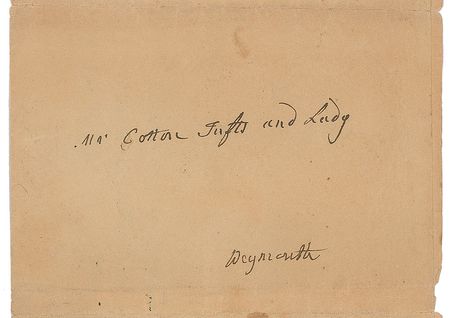 Mr Cotton Tufts and Lady
Weymouth